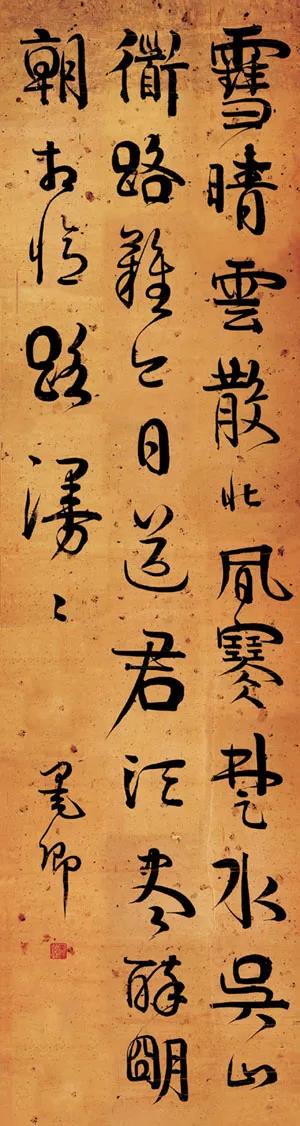 雪晴雲散北風寒楚水吳山
衜路難今日送君須盡醉明
朝相憶路漫〻
卿